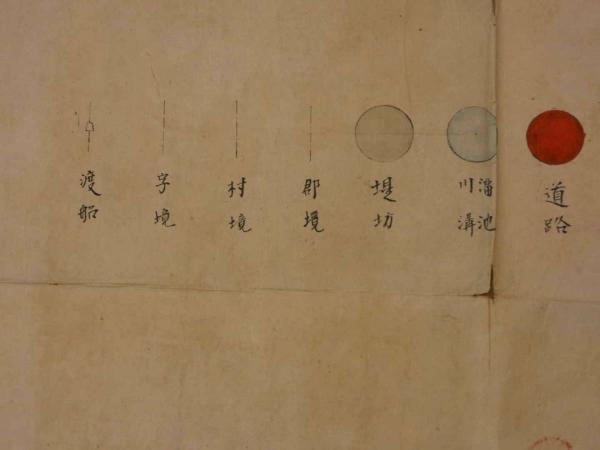 道路
溜池
川溝
堤坊
郡境
村境
字境
渡船